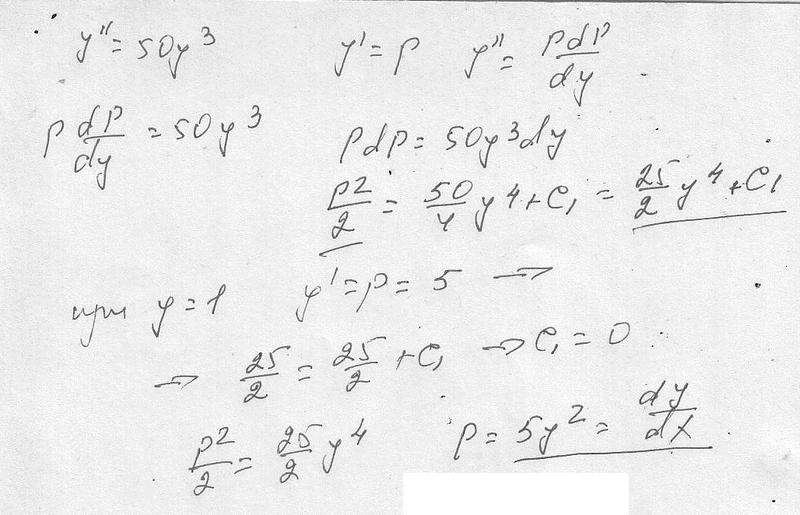 y'' = 50y³ y' = p y'' = pdp/dy
p dp/dy = 50y³ pdp = 50y³dy
p²/2 = 50/4 y⁴ + C₁ = 25/2 y⁴ + C₁
при y = 1 y' = p = 5 →
→ 25/2 = 25/2 + C₁ → C₁ = 0
p²/2 = 25/2 y⁴ p = 5y² = dy/dx